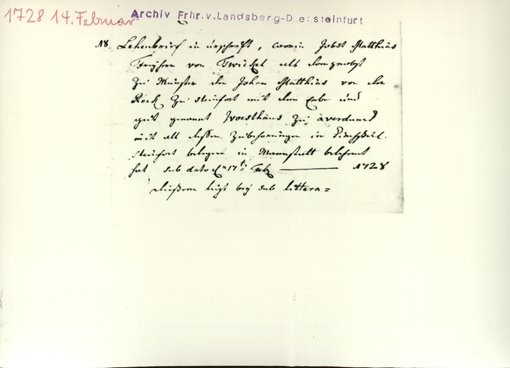 1728 14. Februar
Archiv Frhr.v.Landsberg-D e: steinfurt
N8. Lehenbrief in urschrift, worin Jobst Matthias
Freyherr von Twickel als domprobst
zu Münster den Johan Matthias von der
Reck zu Steinfort mit dem Erbe und
gut genannt zu
mit all dessen Zubehörungen in Kirchspiel
Steinfort belegen in Mannstatt belehnet
hat sub dato 17t Feb 1728
liegt bey sub littera =